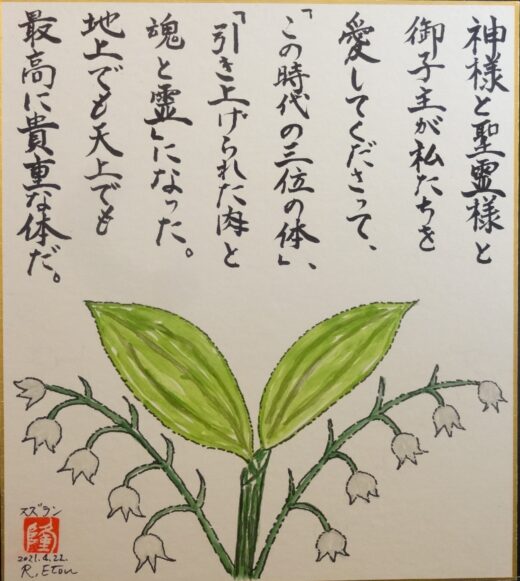 神様と聖霊様と
御子主が私たちを
愛してくださって、
「この時代の三位の体」、
「引き上げられた肉と
魂と霊」になった。
地上でも天上でも
最高に貴重な体だ。
スズラン
隆
2021.4.22.
R. Etou